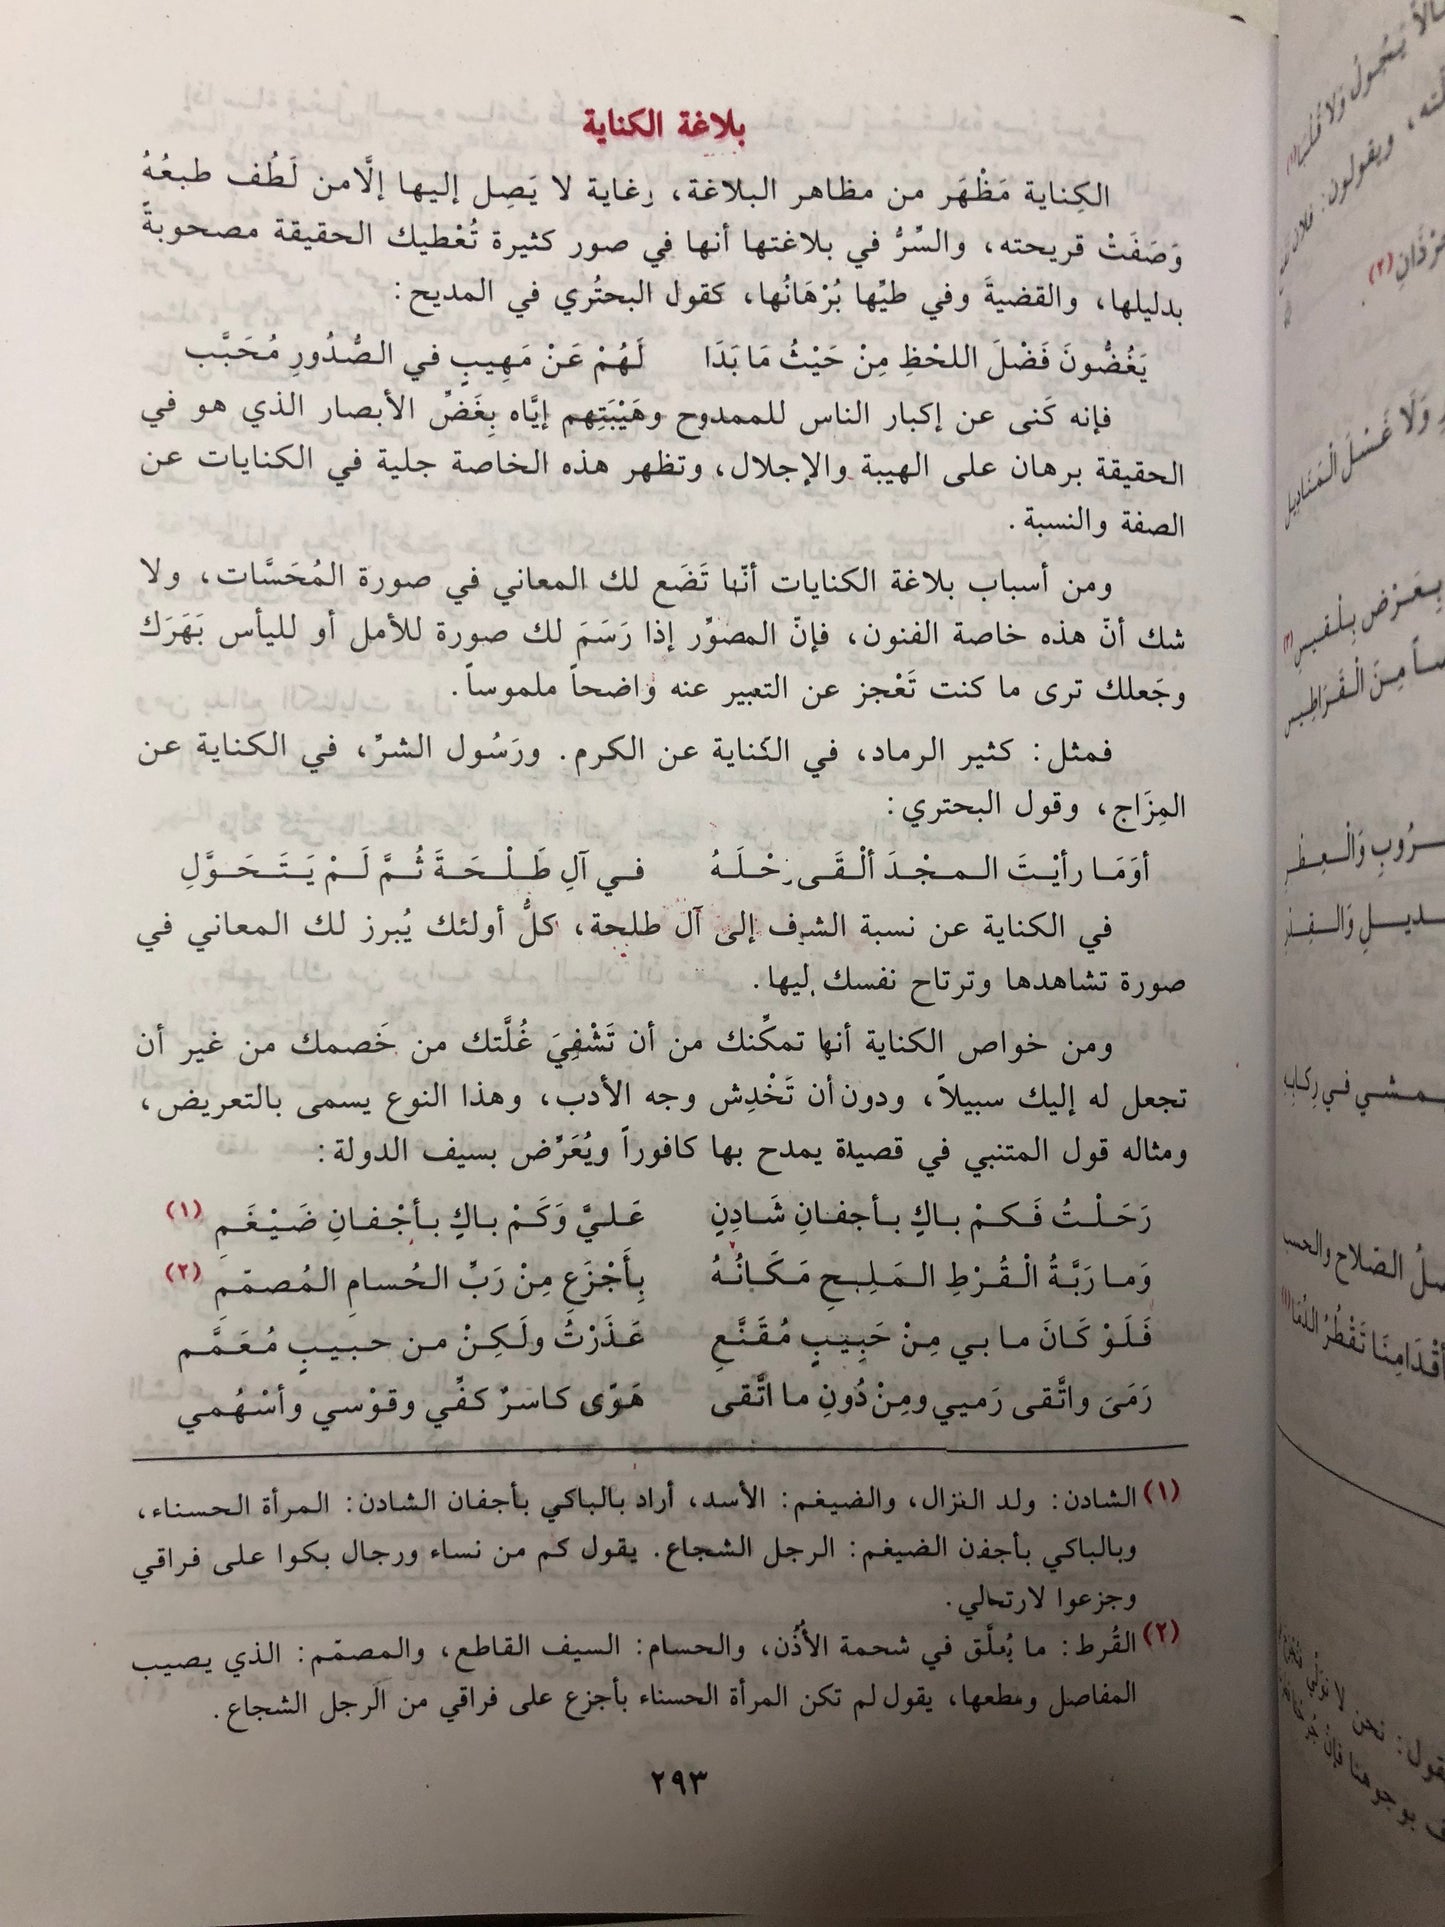 بلاغة الكناية
الكِناية مَظْهَر من مظاهر البلاغة، وغاية لا يَصِل إليها إلَّا من لَطُف طبعُهُ
وَصَفَتْ قريحته، والسِّرُّ في بلاغتها أنها في صور كثيرة تُعْطيك الحقيقة مصحوبةً
بدليلها، والقضيةَ وفي طيِّها بُرْهَانُها، كقول البحتُري في المديح:
يَغُضُّونَ فَضْلَ اللحْظِ مِنْ حَيْثُ مَا بَدَا لَهُمْ عَنْ مَهِيبٍ في الصُّدُورِ مُحَبَّب
فإنه كَنى عن إكبار الناس للممدوح وهَيْبَتِهم إيَّاه بِغَضِّ الأبصار الذي هو في
الحقيقة برهان على الهيبة والإجلال، وتظهر هذه الخاصة جلية في الكنايات عن
الصفة والنسبة.
ومن أسباب بلاغة الكنايات أنّها تَضَع لك المعاني في صورة المُحَسَّات، ولا
شك أنّ هذه خاصة الفنون، فإنّ المصوِّر إذا رَسَمَ لك صورة للأمل أو لليأس بَهَرَك
وجَعلك ترى ما كنت تَعْجز عن التعبير عنه واضحاً ملموساً.
فمثل: كثير الرماد، في الكناية عن الكرم. ورَسُول الشرِّ، في الكناية عن
المِزَاج، وقول البحتري:
أوَمَا رأيْتَ المجْدَ ألْقَى رَحْلَهُ في آلِ طَلْحَةَ ثُمَّ لَمْ يَتَحَوَّلِ
في الكناية عن نسبة الشرف إلى آل طلحة، كلُّ أولئك يُبرز لك المعاني في
صورة تشاهدها وترتاح نفسك إليها.
ومن خواص الكناية أنها تمكِّنك من أن تَشْفِيَ غُلَّتك من خَصمك من غير أن
تجعل له إليك سبيلاً، ودون أن تَخْدِش وجه الأدب، وهذا النوع يسمى بالتعريض،
ومثاله قول المتنبي في قصيدة يمدح بها كافوراً ويُعَرِّض بسيف الدولة:
رَحَلْتُ فَكمْ باكٍ بأجفانِ شَادِنٍ عَليَّ وَكَمْ باكٍ بأجْفانِ ضَيْغَمِ (١)
وَما رَبَّةُ الْقُرْطِ المَلِيحِ مَكَانُهُ بِأَجْزَعِ مِنْ رَبِّ الحُسامِ المُصمّمِ (٢)
فَلَوْ كَانَ ما بي مِنْ حَبِيبٍ مُقَنَّعِ عَذَرْتُ ولَكِنْ من حبيبٍ مُعَمَّم
رَمَىَ واتَّقى رَميي ومِنْ دُونِ ما اتَّقى هَوًى كاسرٌ كفِّي وقوْسي وأسْهُمي
(١) الشادن: ولد الغزال، والضيغم: الأسد، أراد بالباكي بأجفان الشادن: المرأة الحسناء،
وبالباكي بأجفن الضيغم: الرجل الشجاع. يقول كم من نساء ورجال بكوا على فراقي
وجزعوا لارتحالي.
(٢) القُرط: ما يُعلَّق في شحمة الأُذُن، والحسام: السيف القاطع، والمصمّم: الذي يصيب
المفاصل ويقطعها، يقول لم تكن المرأة الحسناء بأجزع على فراقي من الرجل الشجاع.
٢٩٣
بِعَرْض بِلْقيس (٣)
وَلَا غَسْلَ الْمَنَادِيل
أقْدَامِنَا تَقْطُرُ الدِّمَا (١)